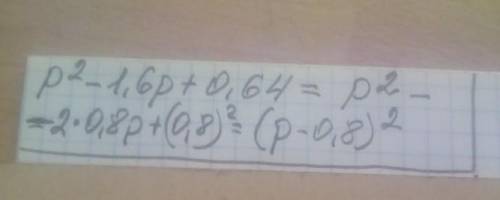 p² - 1,6p + 0,64 = p² -
- 2 · 0,8p + (0,8)² = (p - 0,8)²